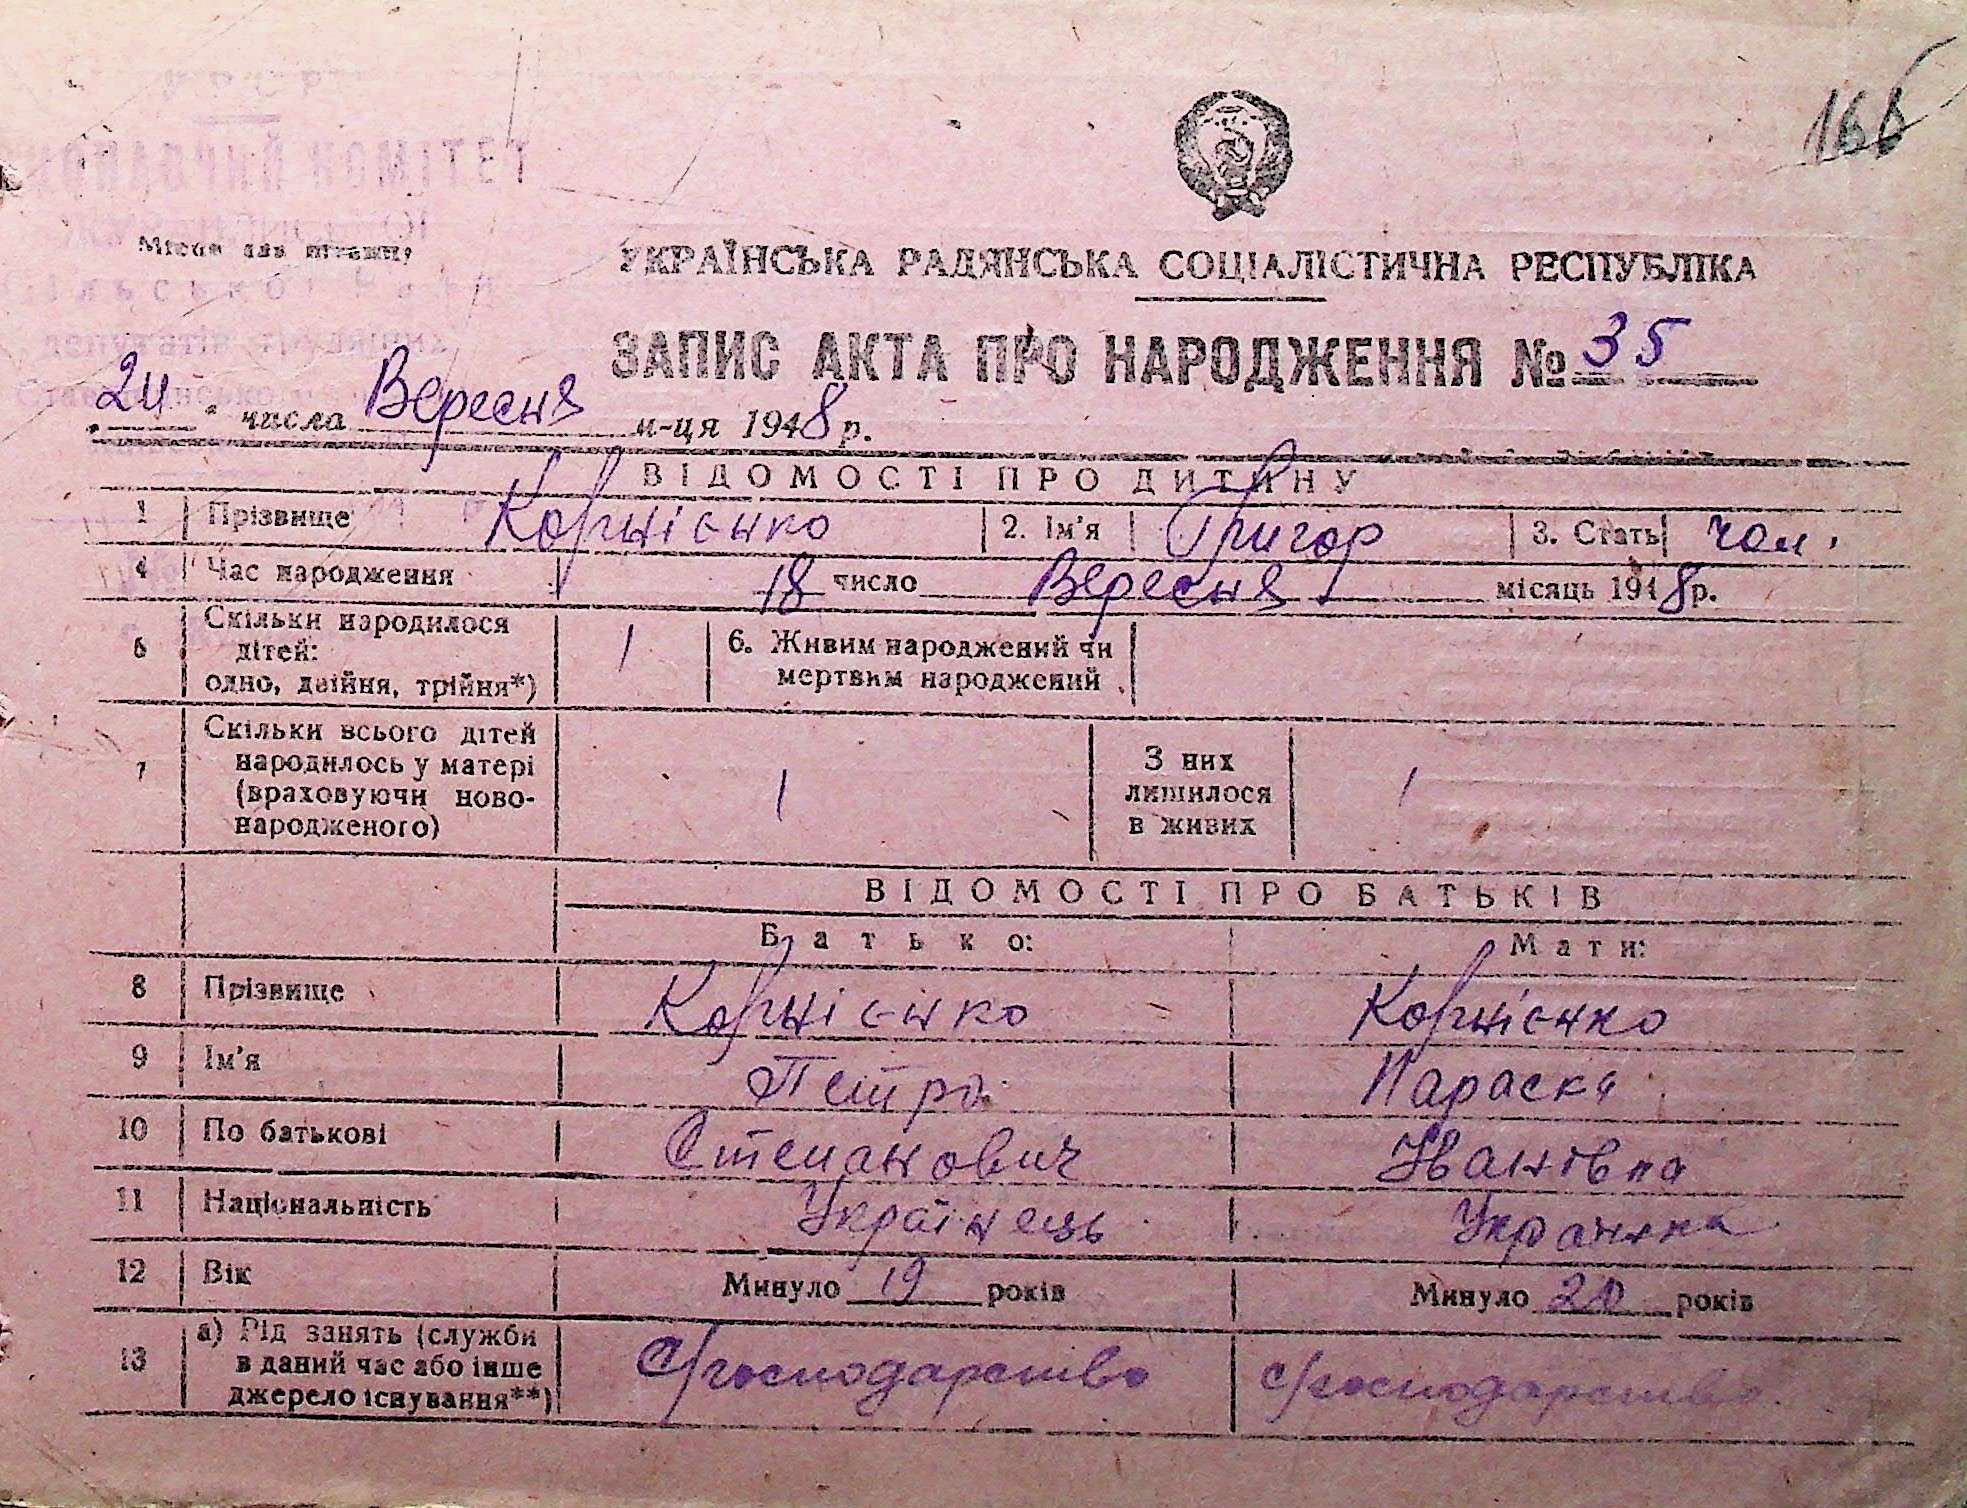 166
КОМІТЕТ
Місце для штампу
УКРАЇНСЬКА РАДЯНСЬКА СОЦІАЛІСТИЧНА РЕСПУБЛІКА
депутатів трудящих
ЗАПИС АКТА ПРО НАРОДЖЕННЯ № 35
24 числа Вересня м-ця 1948 р.
ВІДОМОСТІ ПРО ДИТИНУ
1 Прізвище Корнієнко 2. Ім'я Григор 3. Стать чол.
4 Час народження 18 число Вересня місяць 1948 р.
5 Скільки народилося дітей: одно, двійня, трійня*) 1 6. Живим народжений чи мертвим народжений
7 Скільки всього дітей народилось у матері (враховуючи ново-народженого) 1 З них лишилося в живих 1
ВІДОМОСТІ ПРО БАТЬКІВ
Батько: Мати:
8 Прізвище Корнієнко Корнієнко
9 Ім'я Петро Параска
10 По батькові Степанович Іванівна
11 Національність Українець Українка
12 Вік Минуло 19 років Минуло 20 років
13 а) Рід занять (служби в даний час або інше джерело існування**) С/господарство С/господарство